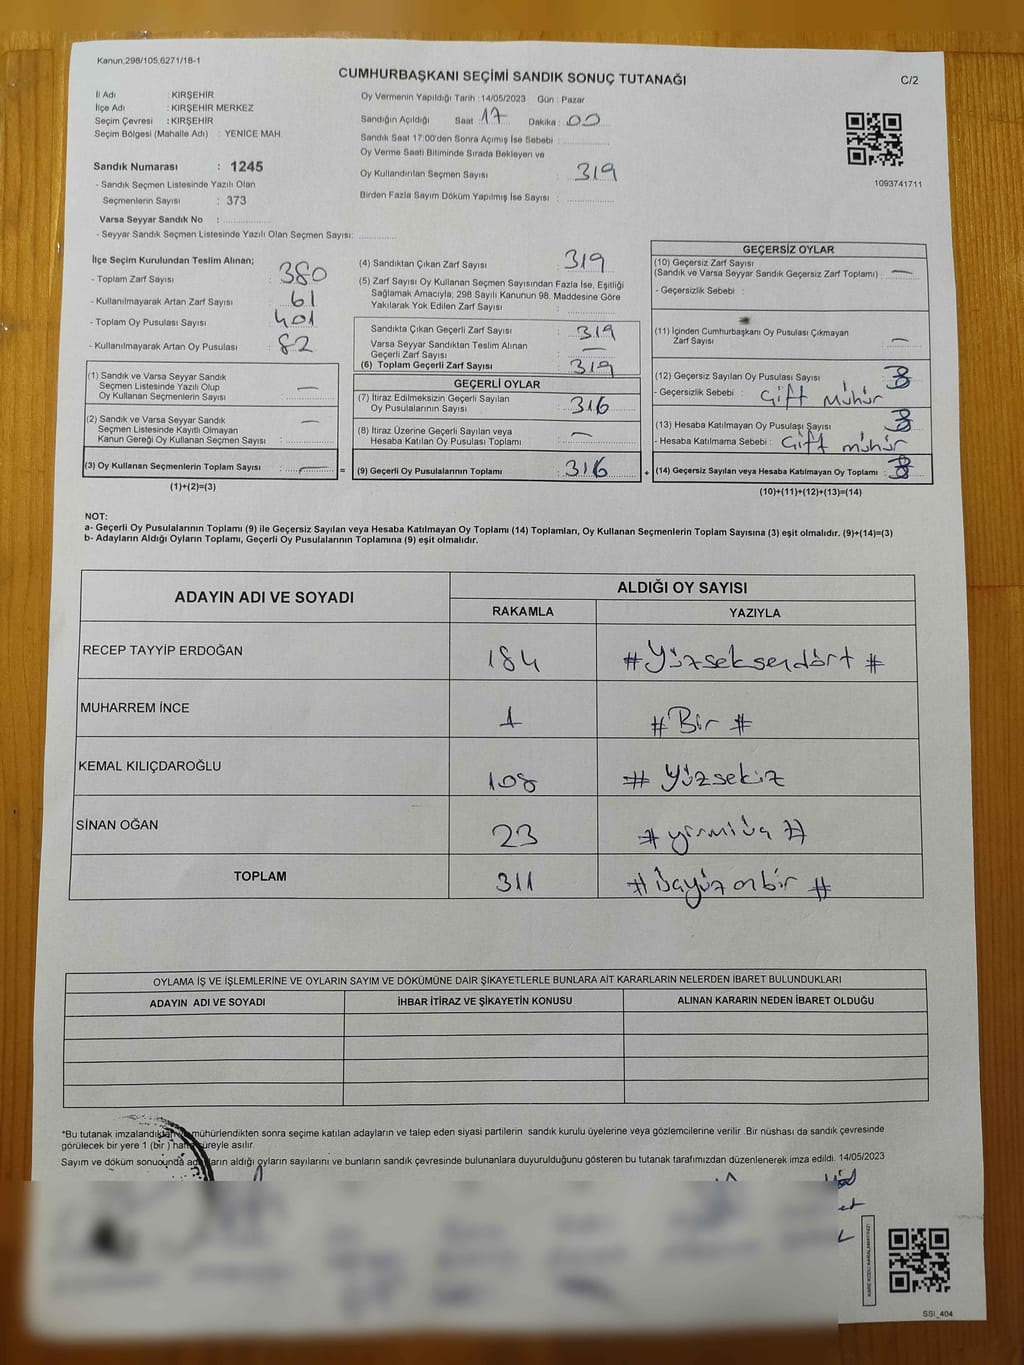 Kanun,298/105,6271/18-1
CUMHURBAŞKANI SEÇİMİ SANDIK SONUÇ TUTANAĞI
C/2
İl Adı : KIRŞEHİR
İlçe Adı : KIRŞEHİR MERKEZ
Seçim Çevresi : KIRŞEHİR
Seçim Bölgesi (Mahalle Adı) : YENICE MAH.
Sandık Numarası : 1245
- Sandık Seçmen Listesinde Yazılı Olan
Seçmenlerin Sayısı : 373
Varsa Seyyar Sandık No :
- Seyyar Sandık Seçmen Listesinde Yazılı Olan Seçmen Sayısı:
Oy Vermenin Yapıldığı Tarih : 14/05/2023 Gün : Pazar
Sandığın Açıldığı Saat : 17 Dakika : 00
Sandık Saat 17:00'den Sonra Açımış İse Sebebi :
Oy Verme Saati Bitiminde Sırada Bekleyen ve
Oy Kullandırılan Seçmen Sayısı : 319
Birden Fazla Sayım Döküm Yapılmış İse Sayısı :
1093741711
İlçe Seçim Kurulundan Teslim Alınan;
- Toplam Zarf Sayısı : 380
- Kullanılmayarak Artan Zarf Sayısı : 61
- Toplam Oy Pusulası Sayısı : 401
- Kullanılmayarak Artan Oy Pusulası : 82
(1) Sandık ve Varsa Seyyar Sandık
Seçmen Listesinde Yazılı Olup
Oy Kullanan Seçmenlerin Sayısı : —
(2) Sandık ve Varsa Seyyar Sandık
Seçmen Listesinde Kayıtlı Olmayan
Kanun Gereği Oy Kullanan Seçmen Sayısı : —
(3) Oy Kullanan Seçmenlerin Toplam Sayısı : —
(1)+(2)=(3)
(4) Sandıktan Çıkan Zarf Sayısı : 319
(5) Zarf Sayısı Oy Kullanan Seçmen Sayısından Fazla İse, Eşitliği
Sağlamak Amacıyla; 298 Sayılı Kanunun 98. Maddesine Göre
Yakılarak Yok Edilen Zarf Sayısı :
Sandıkta Çıkan Geçerli Zarf Sayısı : 319
Varsa Seyyar Sandıktan Teslim Alınan
Geçerli Zarf Sayısı : —
(6) Toplam Geçerli Zarf Sayısı : 319
GEÇERLİ OYLAR
(7) İtiraz Edilmeksizin Geçerli Sayılan
Oy Pusulalarının Sayısı : 316
(8) İtiraz Üzerine Geçerli Sayılan veya
Hesaba Katılan Oy Pusulası Toplamı : —
= (9) Geçerli Oy Pusulalarının Toplamı : 316 +
GEÇERSİZ OYLAR
(10) Geçersiz Zarf Sayısı
(Sandık ve Varsa Seyyar Sandık Geçersiz Zarf Toplamı) : —
- Geçersizlik Sebebi :
(11) İçinden Cumhurbaşkanı Oy Pusulası Çıkmayan
Zarf Sayısı : —
(12) Geçersiz Sayılan Oy Pusulası Sayısı : 3
- Geçersizlik Sebebi : Çift Mühür
(13) Hesaba Katılmayan Oy Pusulası Sayısı : 3
- Hesaba Katılmama Sebebi : Çift mühür
(14) Geçersiz Sayılan veya Hesaba Katılmayan Oy Toplamı : 3
(10)+(11)+(12)+(13)=(14)
NOT:
a- Geçerli Oy Pusulalarının Toplamı (9) ile Geçersiz Sayılan veya Hesaba Katılmayan Oy Toplamı (14) Toplamları, Oy Kullanan Seçmenlerin Toplam Sayısına (3) eşit olmalıdır. (9)+(14)=(3)
b- Adayların Aldığı Oyların Toplamı, Geçerli Oy Pusulalarının Toplamına (9) eşit olmalıdır.
ADAYIN ADI VE SOYADI ALDIĞI OY SAYISI
RAKAMLA YAZIYLA
RECEP TAYYİP ERDOĞAN 184 #Yüzseksendört#
MUHARREM İNCE 1 #Bir#
KEMAL KILIÇDAROĞLU 108 #Yüzsekiz
SİNAN OĞAN 23 #yirmiüç#
TOPLAM 311 #üçyüzonbir#
OYLAMA İŞ VE İŞLEMLERİNE VE OYLARIN SAYIM VE DÖKÜMÜNE DAİR ŞİKAYETLERLE BUNLARA AİT KARARLARIN NELERDEN İBARET BULUNDUKLARI
ADAYIN ADI VE SOYADI İHBAR İTİRAZ VE ŞİKAYETİN KONUSU ALINAN KARARIN NEDEN İBARET OLDUĞU
*Bu tutanak mühürlendikten sonra seçime katılan adayların ve talep eden siyasi partilerin sandık kurulu üyelerine veya gözlemcilerine verilir. Bir nüshası da sandık çevresinde
görülecek bir yere 1 (bir) süreyle asılır.
Sayım ve döküm sonucunda aldığı oyların sayılarını ve bunların sandık çevresinde bulunanlara duyurulduğunu gösteren bu tutanak tarafımızdan düzenlenerek imza edildi. 14/05/2023
KARE KODU KARALAMAYINIZ!
SSI_404